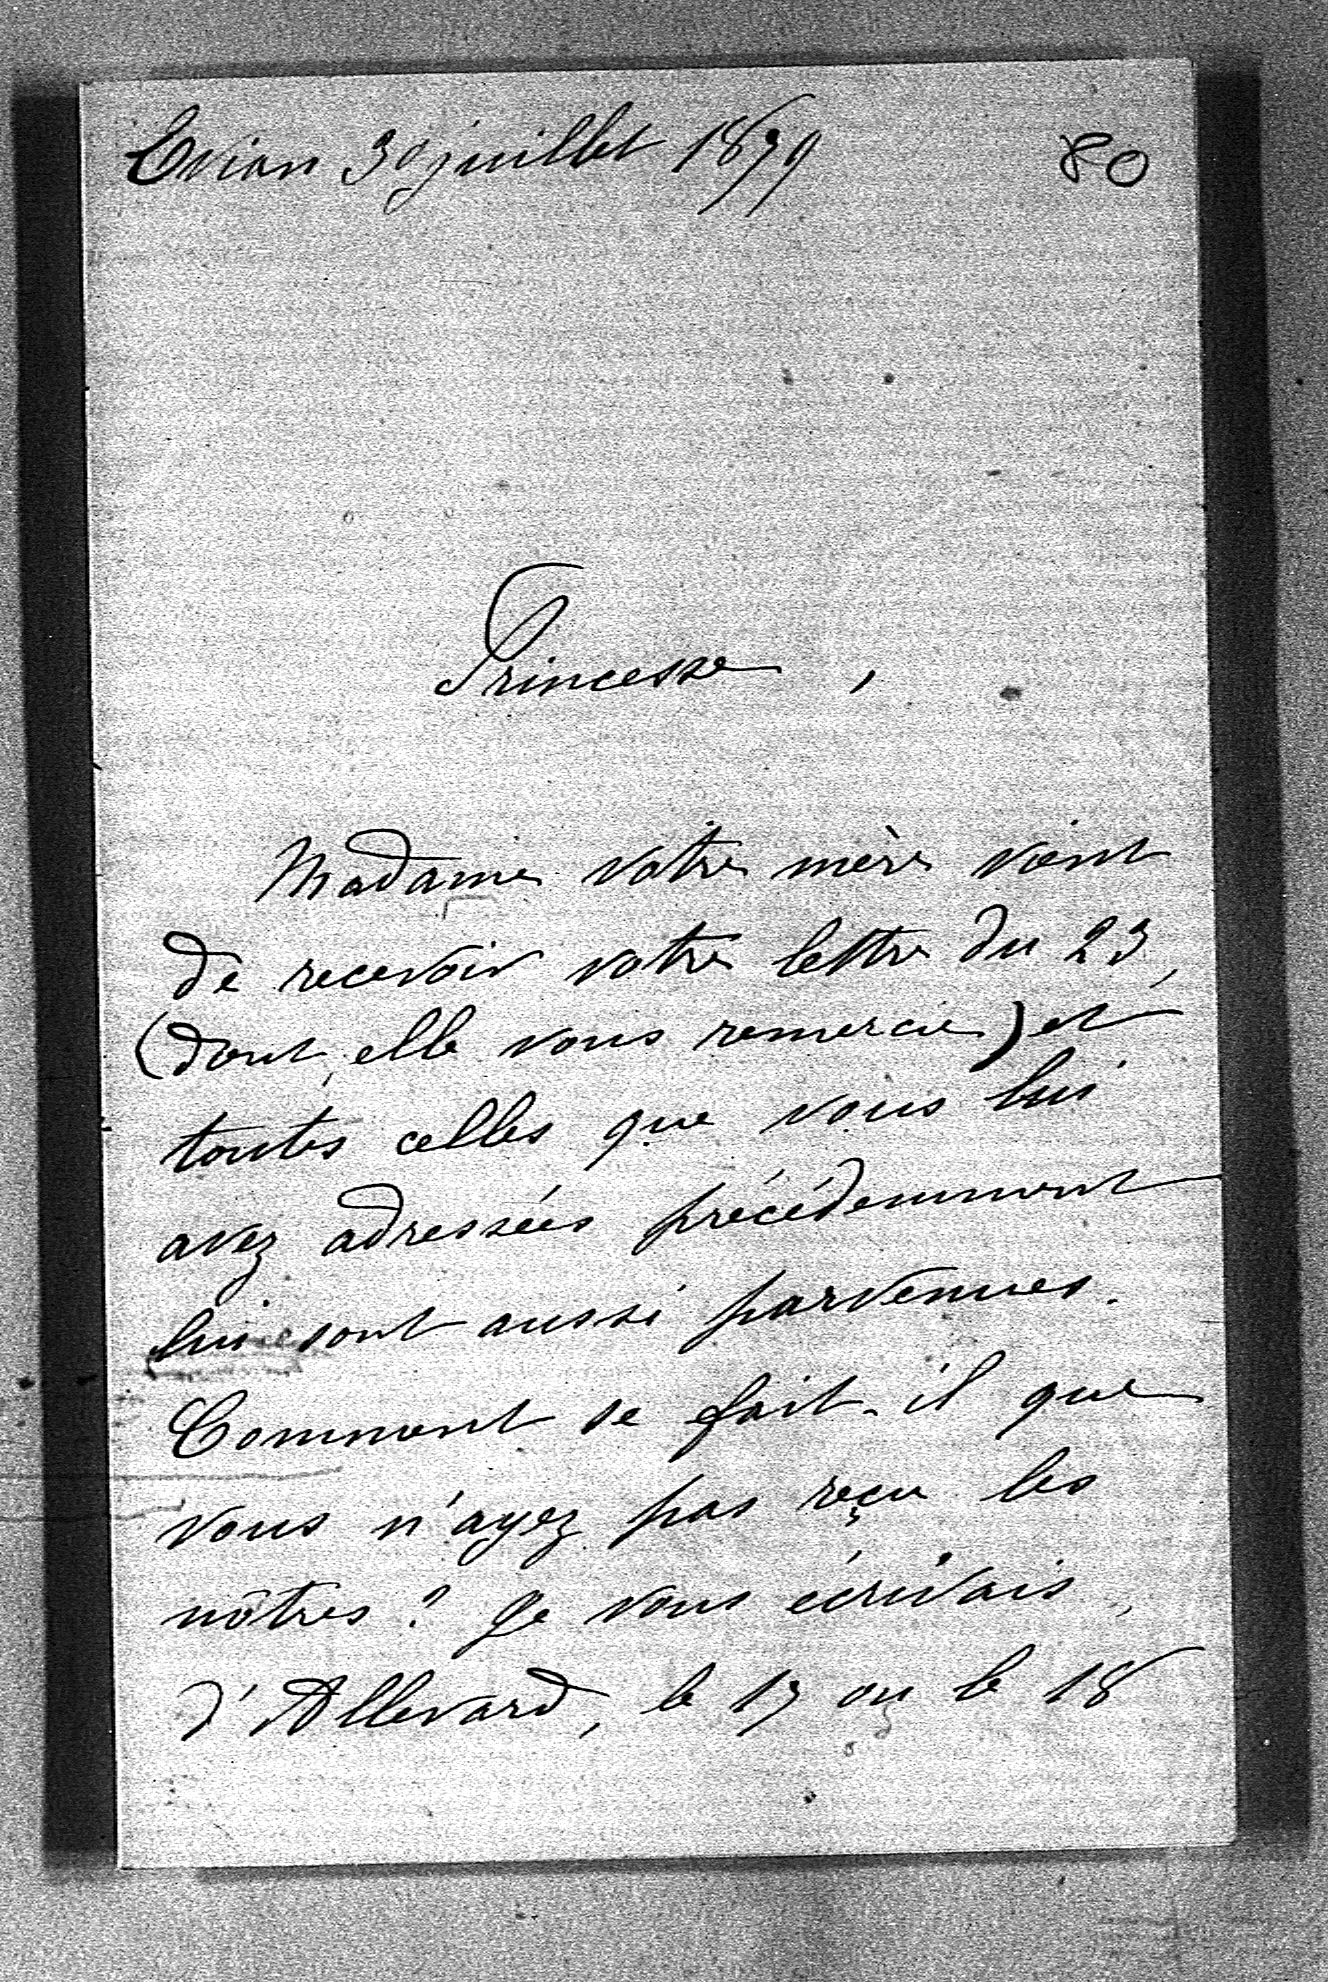 Evian 30 juillet 1879
80
Princesse,
Madame votre mère vient
de recevoir votre lettre du 23,
(dont elle vous remercie) et
toutes celles que vous lui
avez adressées précédemment
lui sont aussi parvenues.
Comment se fait-il que
vous n'ayez pas reçu les
nôtres? Je vous écrivais,
d'Allevard, le 17 ou le 18